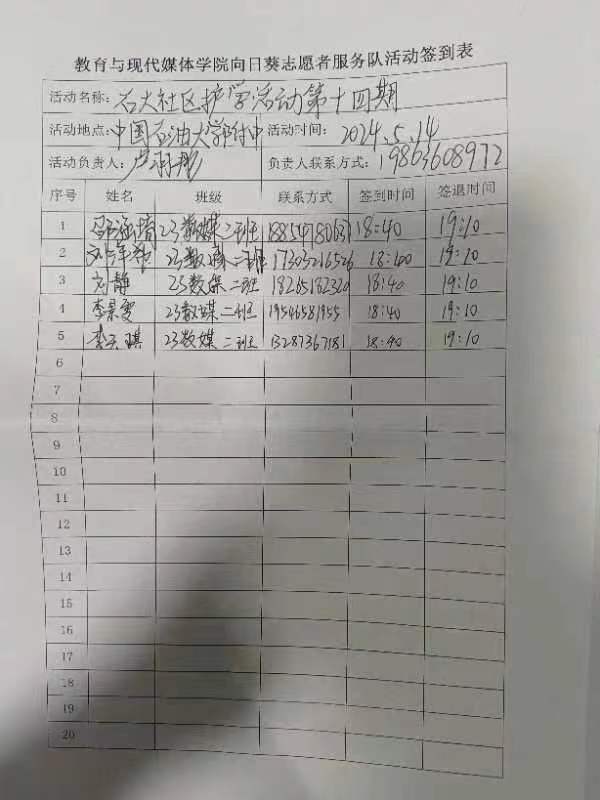 教育与现代媒体学院向日葵志愿者服务队活动签到表
活动名称：石大社区护学活动第十四期
活动地点：中国石油大学附中 活动时间：2024.5.14
活动负责人： 负责人联系方式：19863608972
序号 姓名 班级 联系方式 签到时间 签退时间
1 23数媒二班 18:40 19:10
2 23数媒二班 17305216526 19:10
3 刘静 23数媒二班 18265182320 18:40 19:10
4 李景雯 23数媒二班 19546581955 18:40 19:10
5 23数媒二班 13287367181 18:40 19:10
6
7
8
9
10
11
12
13
14
15
16
17
18
19
20